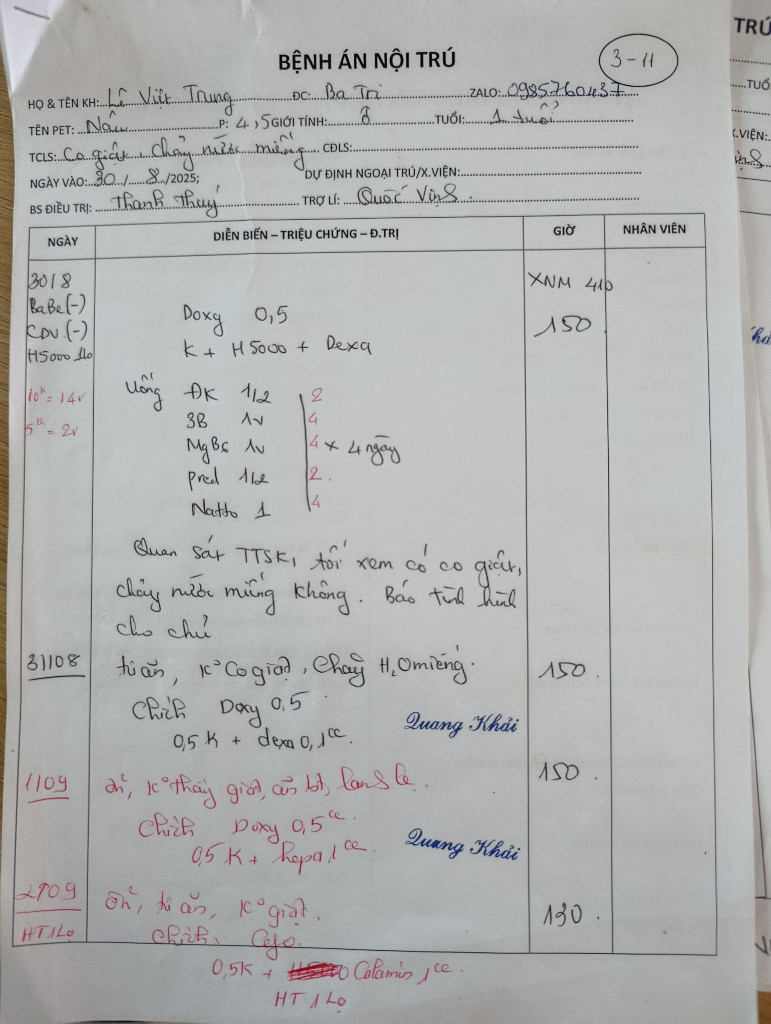 BỆNH ÁN NỘI TRÚ
3-11
HỌ & TÊN KH: Lê Việt Trung ĐC: Ba Tri ZALO: 0985760437
TÊN PET: Nâu P: 4,5 GIỚI TÍNH: TUỔI: 1 tuổi
TCLS: Co giật, chảy nước miếng CĐLS:
NGÀY VÀO: 30/8/2025; DỰ ĐỊNH NGOẠI TRÚ/X.VIỆN:
BS ĐIỀU TRỊ: Thanh Thuý TRỢ LÍ: Quốc Vinh
NGÀY DIỄN BIẾN – TRIỆU CHỨNG – Đ.TRỊ GIỜ NHÂN VIÊN
30/8 XNM 410
BaBe(-) Doxy 0,5 150
CDV(-) K + H5000 + Dexa
H5000 1lọ
Uống ĐK 1/2 2
10k = 14v 3B 1v 4
5k = 2v MgB6 1v 4 x 4 ngày
pred 1/2 2
Natto 1 4
Quan sát TTSK, tối xem có co giật,
chảy nước miếng không. Báo tình hình
cho chủ
31/08 tự ăn, K° Co giật, Chảy H2O miếng. 150
Chích Doxy 0,5
0,5 K + dexa 0,1cc. Quang Khải
1/09 ổn, K° thấy giật, ăn bt, lanh lẹ. 150
Chích Doxy 0,5cc
0,5 K + hepa 1cc. Quang Khải
2/09 Ổn, tự ăn, K° giật. 130
HT 1Lọ Chích. Cefo.
0,5K + Calamin 1cc.
HT 1 Lọ
TRÚ
TUỔ
X.VIỆN: